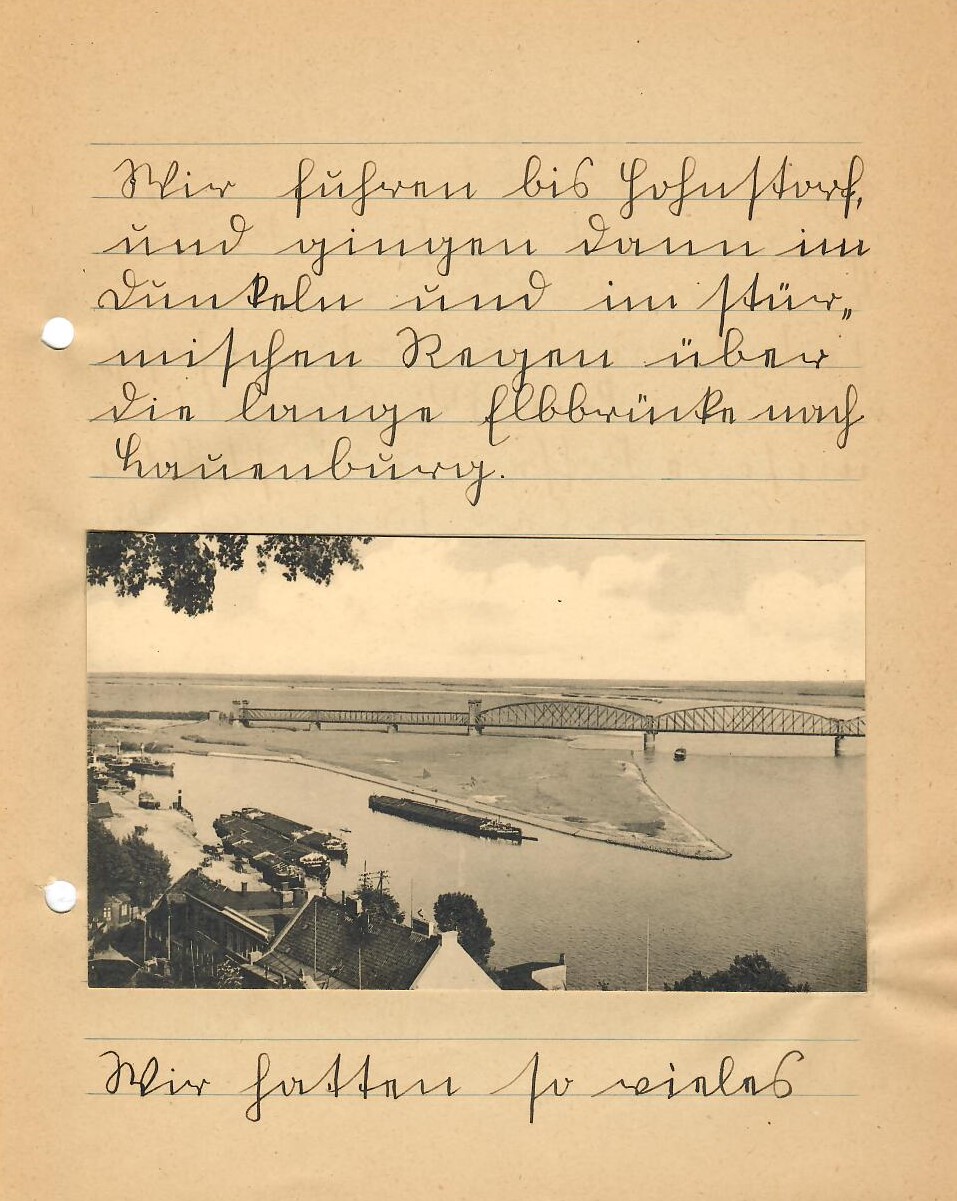 Wir fuhren bis Hohnstorf,
und gingen dann im
Dunkeln und im stür„
mischen Regen über
die lange Elbbrücke nach
Lauenburg.
Wir hatten so vieles